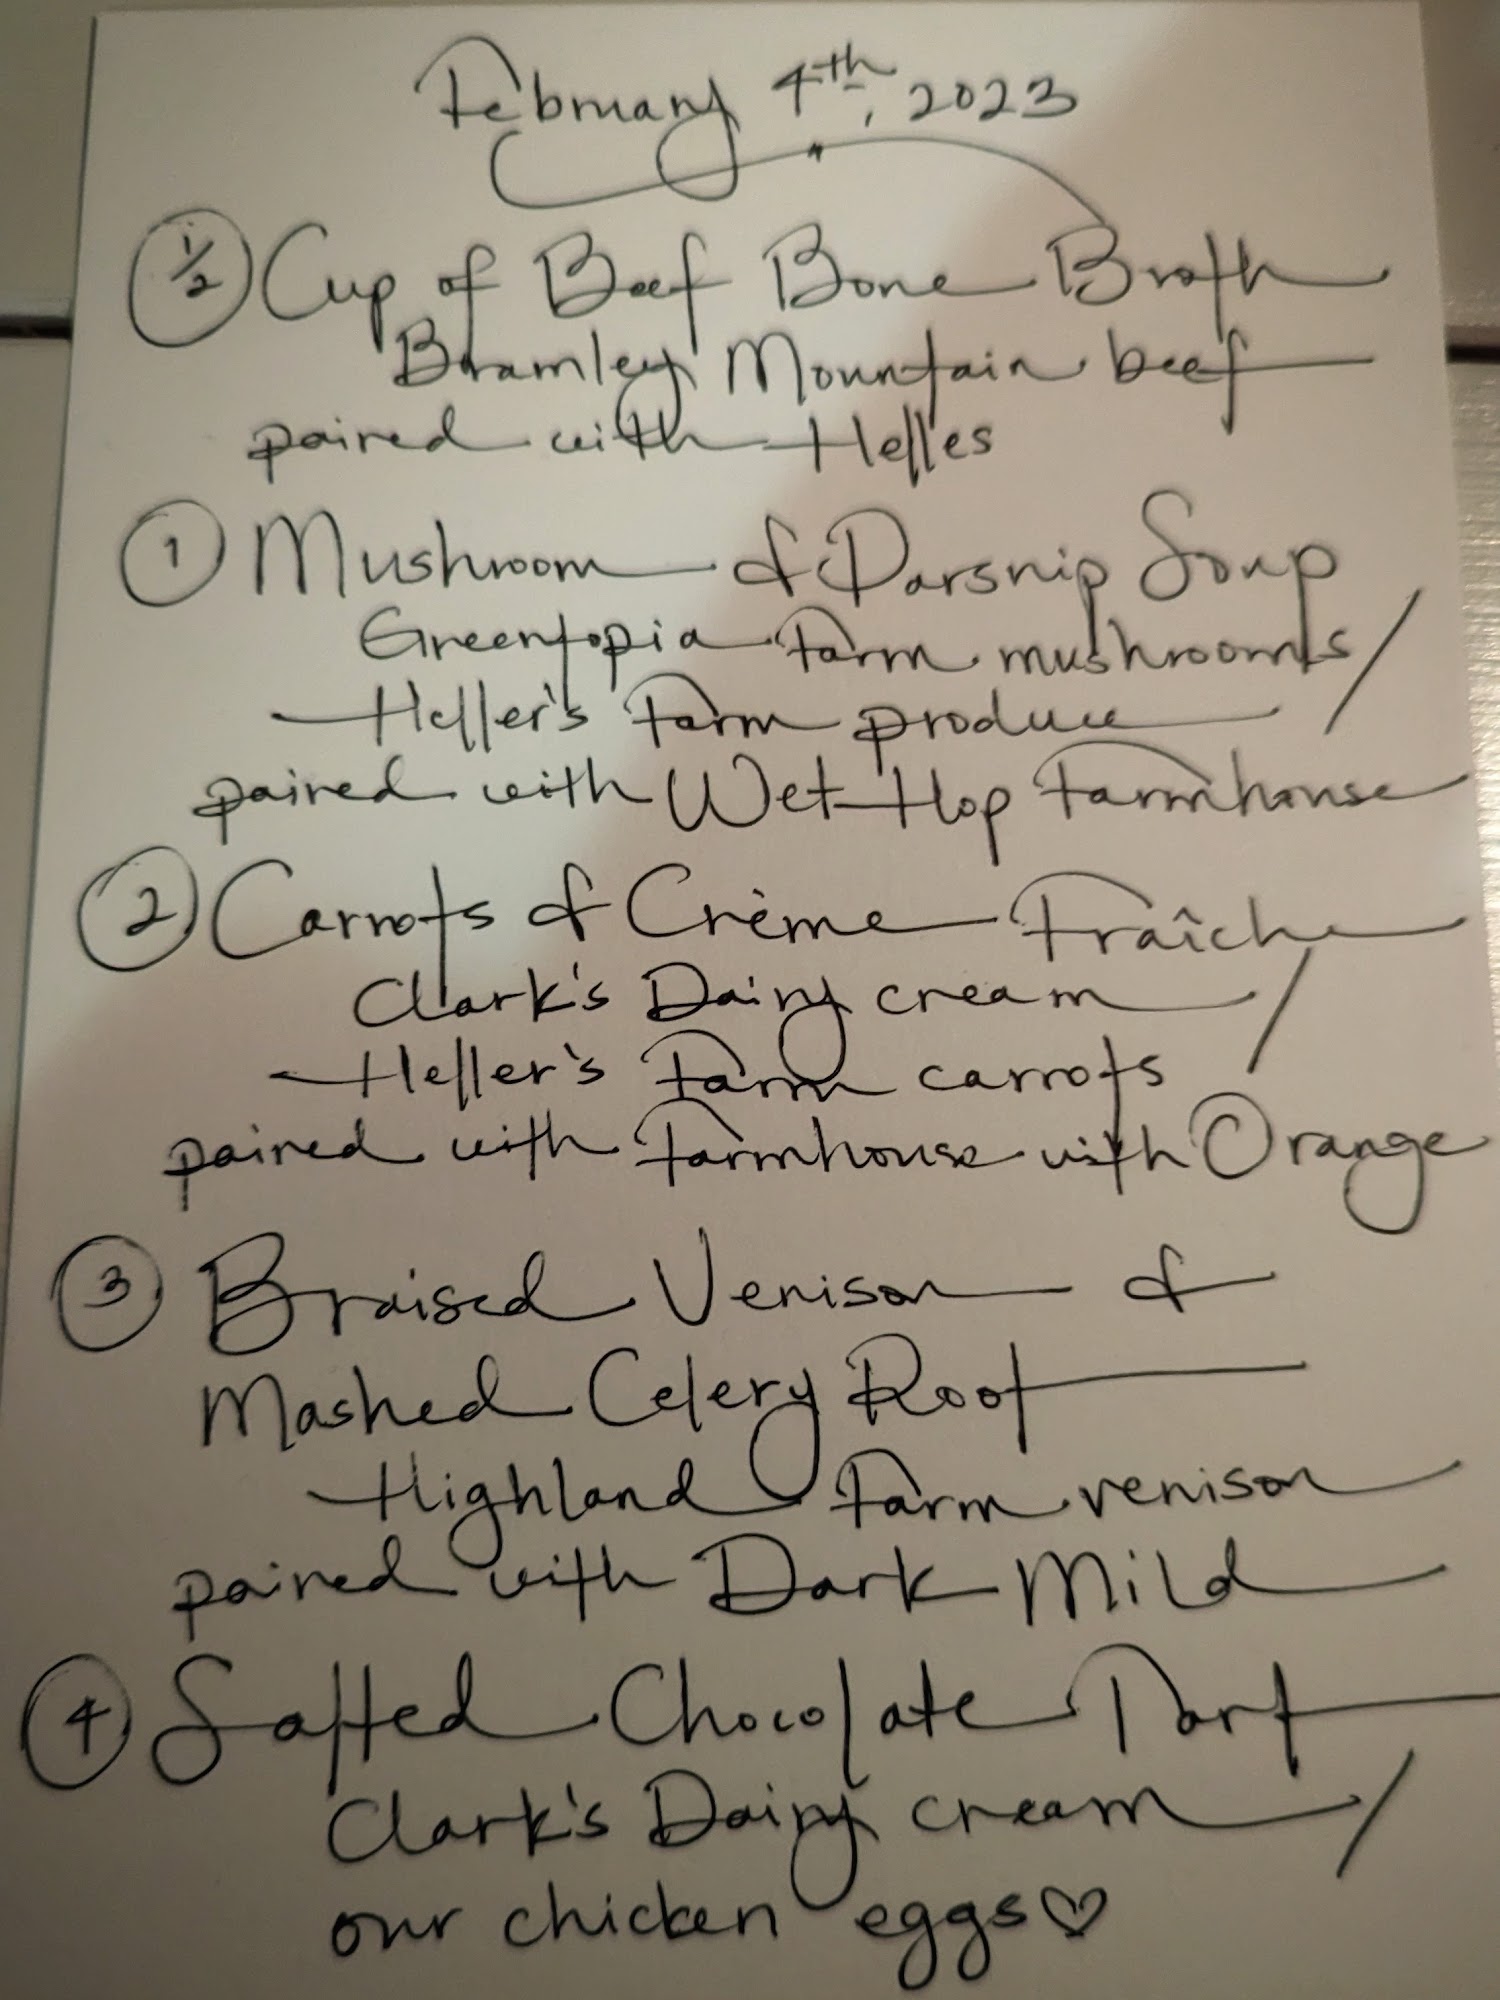 February 4th, 2023
1/2 Cup of Beef Bone Broth
Bramley Mountain beef
paired with Helles
1 Mushroom & Parsnip Soup
Greentopia Farm mushrooms/
Heller's Farm produce
paired with Wet Hop Farmhouse
2 Carrots & Crème Fraîche
Clark's Dairy cream /
Heller's Farm carrots
paired with Farmhouse with Orange
3 Braised Venison &
Mashed Celery Root
Highland Farm venison
paired with Dark Mild
4 Salted Chocolate Tart
Clark's Dairy cream /
our chicken eggs ♡